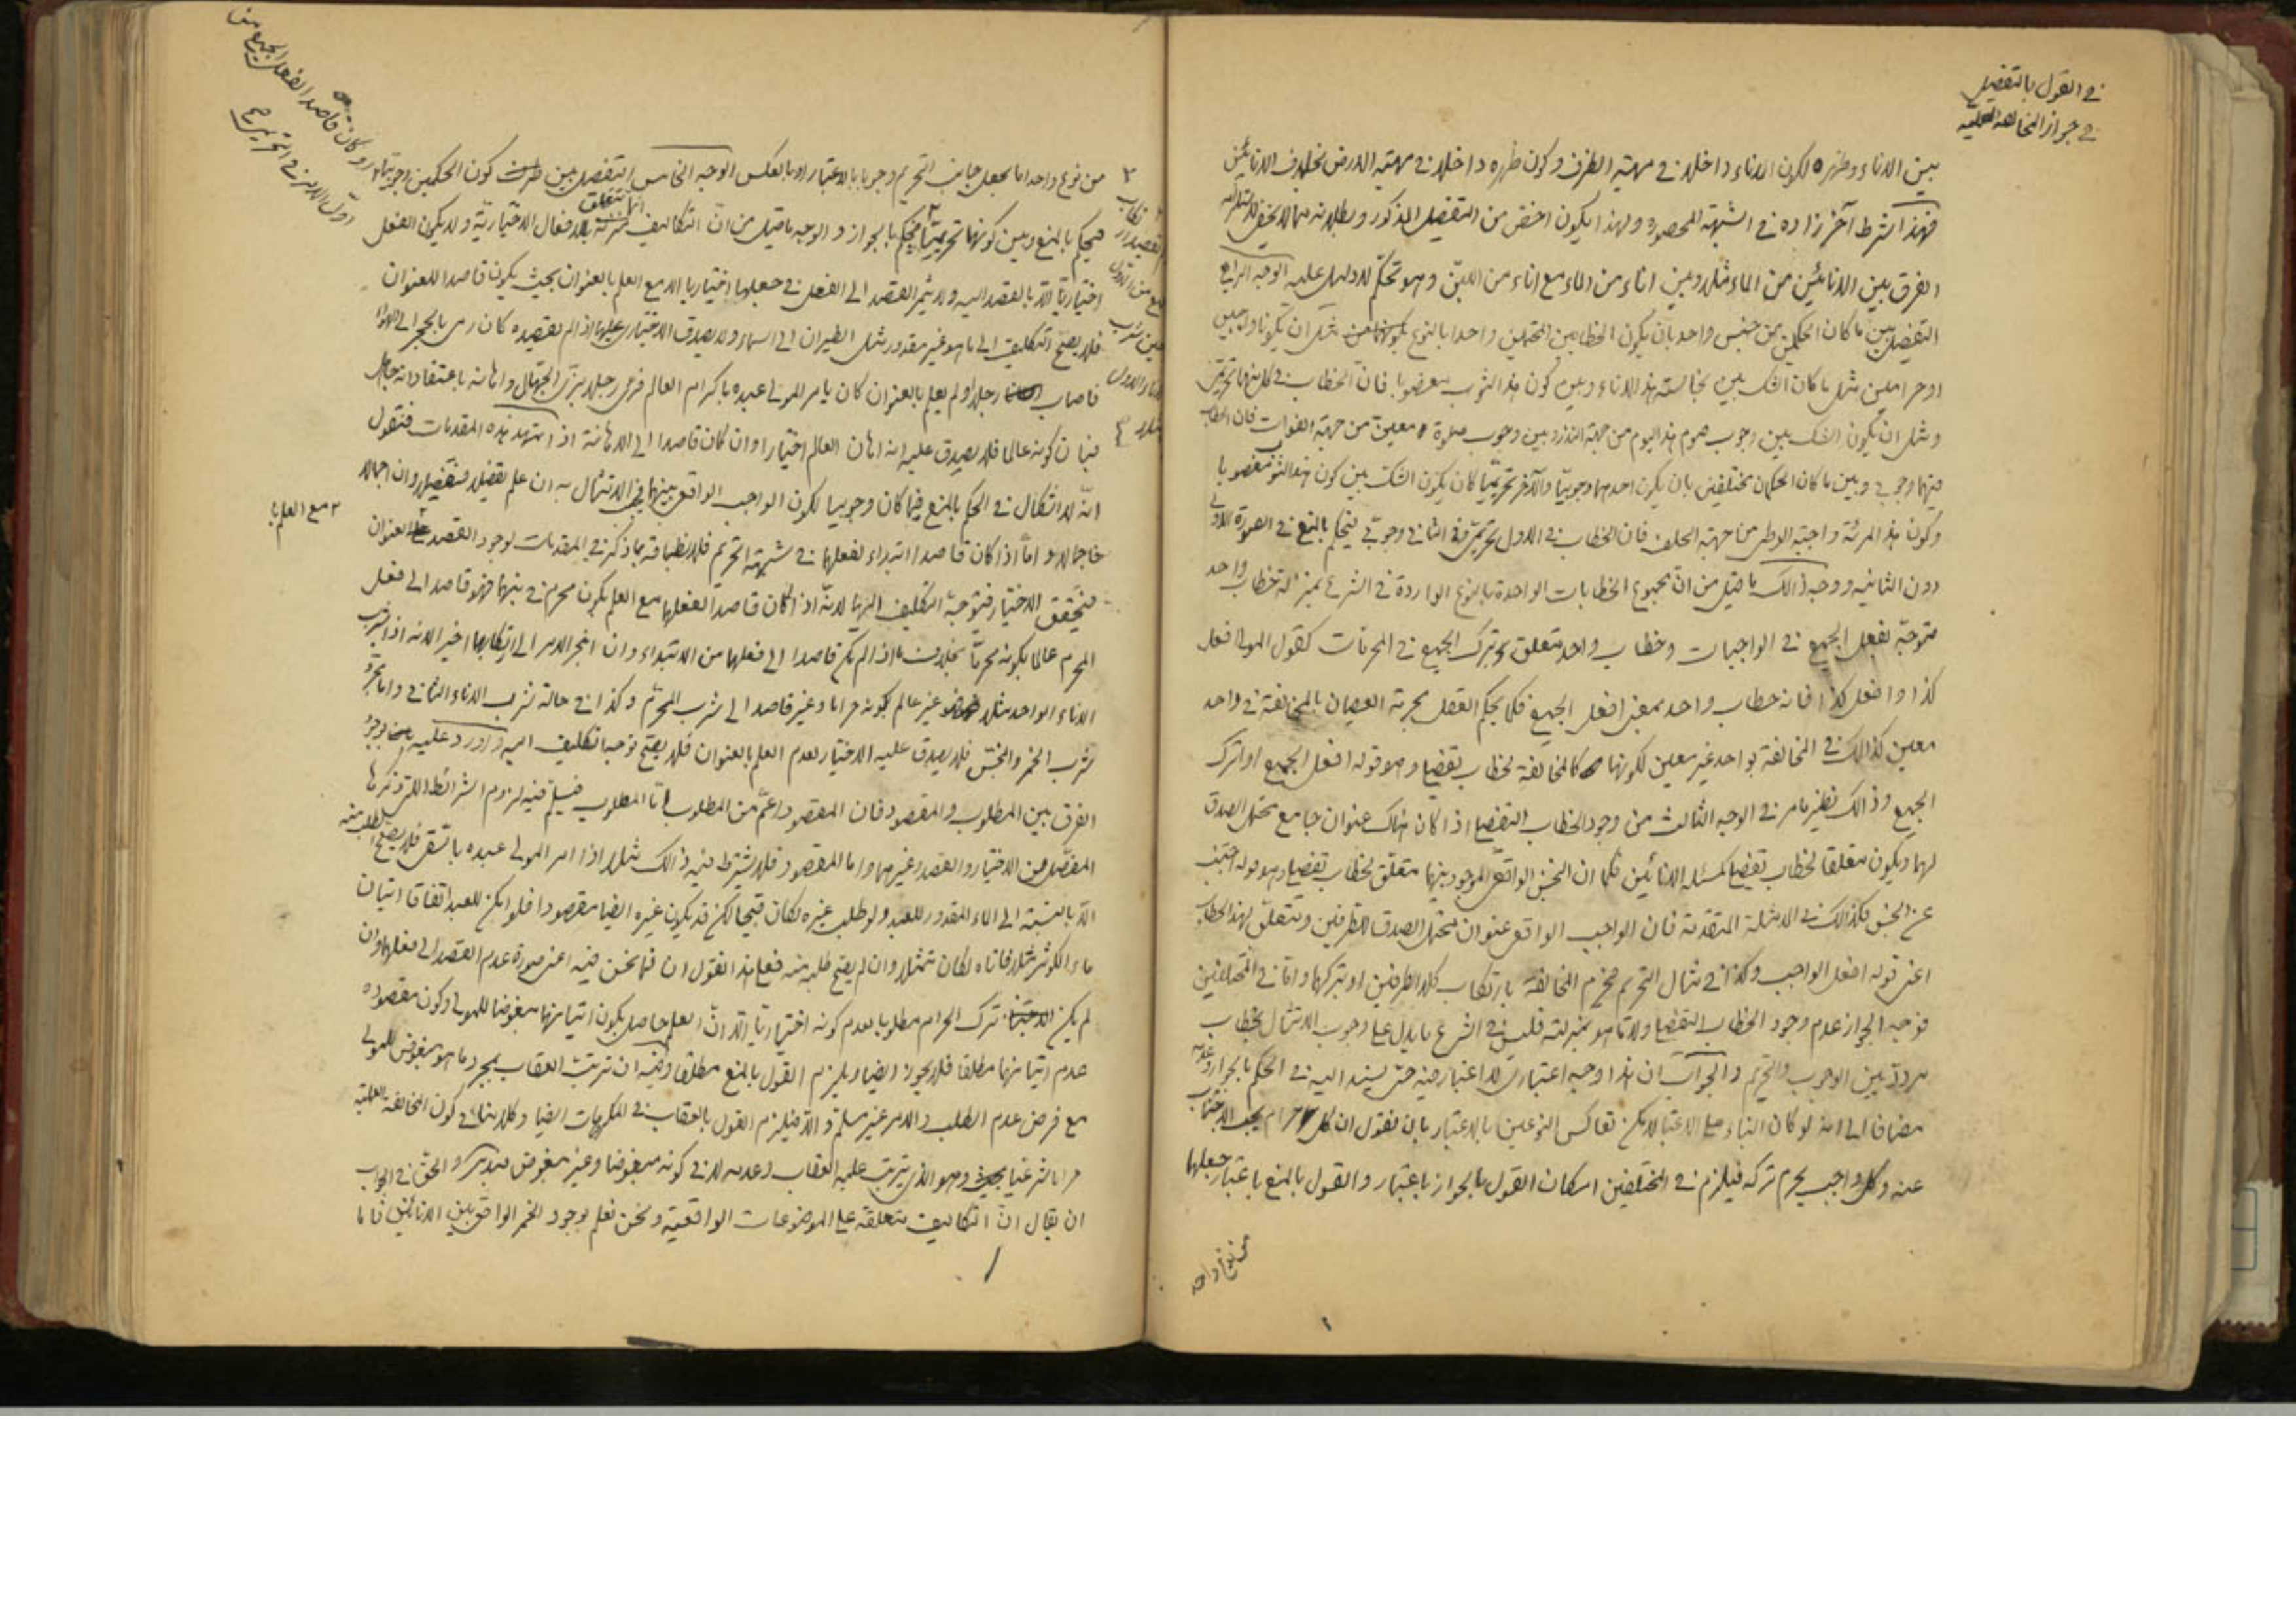 في القول بالتفصيل
في جواز المخالفة العلمية
بين الاناء وظهره لكون الاناء داخلا في مهية الظرف وكون ظهره داخلا في مهية الارض بخلاف الانائين
فهذا شرط آخر زاده في الشبهة المحصورة ولهذا يكون اخص من التفصيل المذكور وبطلانه مما لا يخفى
الفرق بين الانائين من الماء مثلا وبين اناء من الماء مع اناء من اللبن وهو تحكم لا دليل عليه الوجه الرابع
التفصيل بين ما كان الحكمين من جنس واحد بان يكون الخطابين المحتملين واحدا بالنوع مثل ان يكونا واجبين
او حرامين مثل ما كان الشك بين نجاسة هذا الاناء وبين كون هذا الثوب مغصوبا فان الخطاب في كل منهما تحريمي
ومثل ان يكون الشك بين وجوب صوم هذا اليوم من جهة النذر وبين وجوب صلوة معينة من جهة الفوات فان الخطاب
فيهما وجوبي وبين ما كان الحكمان مختلفين بان يكون احدهما وجوبيا والآخر تحريميا كان يكون الشك بين كون هذا الثوب مغصوبا
وكون هذا المرئة واجبة الوطى من جهة الحلف فان الخطاب في الاول تحريمي وفي الثاني وجوبي فيحكم بالمنع في الصورة الاولى
دون الثانيه ووجه ذالك ما قيل من ان مجموع الخطابات الواحدة بالنوع الواردة في الشرع بمنزلة خطاب واحد
متوجه بفعل الجميع في الواجبات وخطاب واحد متعلق بترك الجميع في المحرمات كقول المولى افعل
كذا وافعل كذا فانه خطاب واحد بمعنى افعل الجميع فكما يحكم العقل بحرمة العصيان بالمخالفة في واحد
معين كذالك في المخالفة بواحد غير معين لكونها كالمخالفة لخطاب تفصيلي وهو قوله افعل الجميع او اترك
الجميع وذالك نظير ما مر في الوجه الثالث من وجود الخطاب التفصيلي اذا كان هناك عنوان جامع محتمل الصدق
لهما ويكون متعلقا لخطاب تفصيلي كمسئلة الانائين فكما ان النجس الواقعي الموجود بينهما متعلق لخطاب تفصيلي وهو قوله اجتنب
عن النجس فكذالك في الامثلة المتقدمة فان الواجب الواقعي عنوان محتمل الصدق للطرفين ويتعلق بهذا الخطاب
اعني قوله افعل الواجب وكذا في مثال التحريم فيحرم المخالفة بارتكاب كلا الطرفين او بتركهما واما في المختلفين
فوجه الجواز عدم وجود الخطاب التفصيلي ولا ما هو بمنزلته فليس في الشرع ما يدل على وجوب الامتثال بخطاب
مردد بين الوجوب والتحريم والجواب ان هذا وجه اعتباري لا اعتبار فيه حتى يستند اليه في الحكم بالجواز وعدمه
مضافا الى انه لو كان البناء على الاعتبار لامكن تعاكس النوعين بالاعتبار بان نقول ان كل حرام يجب الاجتناب
عنه وكل واجب يحرم تركه فيلزم في المختلفين امكان القول بالجواز باعتبار والقول بالمنع باعتبار جعلها
من نوع واحد
من نوع واحد اما بجعل جانب التحريم وجوبا بالاعتبار او بالعكس الوجه الخامس التفصيل بين كون الحكمين وجوبيا
فيحكم بالمنع وبين كونهما تحريميا فيحكم بالجواز والوجه ما قيل من ان التكاليف انما تتعلق بالافعال الاختيارية ولا يكون الفعل
اختياريا الا بالقصد اليه ولا يثمر القصد الى الفعل في جعلها اختياريا الا مع العلم بالعنوان بحيث يكون قاصدا للعنوان
فلا يصح التكليف الى ما هو غير مقدور مثل الطيران الى السماء ولا يصدق الاختياري عليها اذا لم يقصده كان رمى بالحجر الى الهواء
فاصاب رجلا ولم يعلم بالعنوان كان يامر المولى عبده باكرام العالم فرأى رجلا بزي الجهال واهانه باعتقاد انه جاهل
فبان كونه عالما فلا يصدق عليه انه اهان العالم اختيارا وان كان قاصدا الى الاهانة اذا تمهد هذه المقدمات فنقول
انه لا اشكال في الحكم بالمنع فيما كان وجوبيا لكون الواجب الواقعي بينهما في الامتثال به ان علم تفصيلا فتفصيلا وان اجمالا
فاجمالا واما اذا كان قاصدا ابتداء لفعلهما في شبهة التحريم فلانطباقه بما ذكر في المقدمات لوجود القصد العنوان
مع العلم با
فيتحقق الاختيار فيتوجه التكليف اليهما لانه اذا كان قاصدا لفعلهما مع العلم بكون محرم في بينهما فهو قاصد الى فعل
المحرم عالما بكونه محرما بخلاف ما اذا لم يكن قاصدا الى فعلهما من الابتداء وان انجر الامر الى ارتكابهما اخيرا لانه اذا شرب
الاناء الواحد مثلا فهو غير عالم بكونه حراما وغير قاصد الى شرب المحرم وكذا في حالة شرب الاناء الثاني
شرب الخمر والنجس فلا يصدق عليه الاختيار لعدم العلم بالعنوان فلا يصح توجه التكليف اليه واورد عليه
الفرق بين المطلوب والمقصود فان المقصود اعم من المطلوب اما المطلوب فيسلم فيه لزوم الشرائط التي ذكرها
المفصل من الاختيار والقصد وغيرهما واما المقصود فلا يشترط فيه ذالك مثلا اذا امر المولى عبده بالسقي فلا يصح الطلب منه
الا بالنسبة الى الماء المقدور للعبد ولو طلب غيره لكان قبيحا لكن قد يكون غيره ايضا مقصودا فلو امكن للعبد اتفاقا اتيان
ماء الكوثر مثلا فاتاه لكان ممتثلا وان لم يصح طلبه منه فعلى هذا نقول ان فيما نحن فيه اعني صورة عدم القصد الى فعلهما وان
لم يكن ترك الحرام مطلوبا لعدم كونه اختياريا الا ان العلم حاصل بكون اتيانهما مبغوضا للمولى وكون مقصوده
عدم اتيانهما مطلقا فلا يجوز ايضا ويلزم القول بالمنع مطلقا وفيه ان ترتب العقاب بمجرد ما هو مبغوض للمولى
مع فرض عدم الطلب والامر غير مسلم والا فيلزم القول بالعقاب في المكروهات ايضا وكلامنا في كون المخالفة العلمية
حراما شرعيا وهو الذي يترتب عليه العقاب وعدمه لا في كونه مبغوضا وغير مبغوض والحق في الجواب
ان يقال ان التكاليف متعلقة على الموضوعات الواقعية ونحن نعلم بوجود الخمر الواقعي بين الانائين